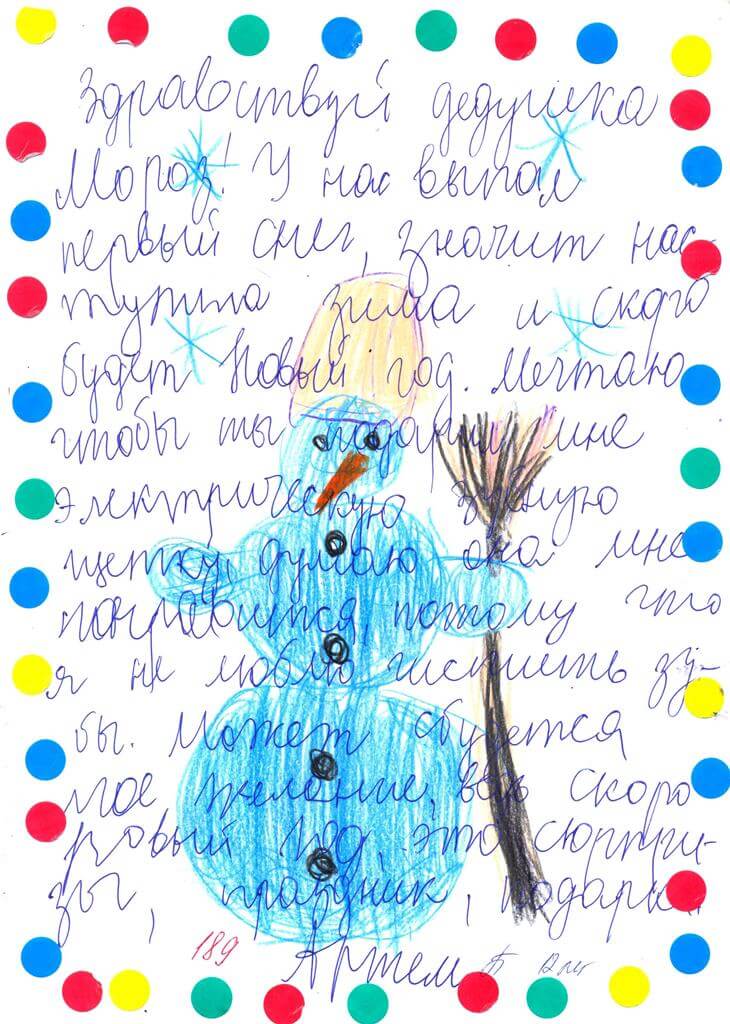 Здравствуй дедушка
Мороз! У нас выпал
первый снег, значит нас-
тупила зима и скоро
будет Новый год. Мечтаю
чтобы ты подарил мне
электрическую зубную
щетку, думаю она мне
понравится, потому что
я не люблю чистить зу-
бы. Может сбудется
мое желание, ведь скоро
Новый год, это сюрпри-
зы, праздник, подарки.
189
Артем